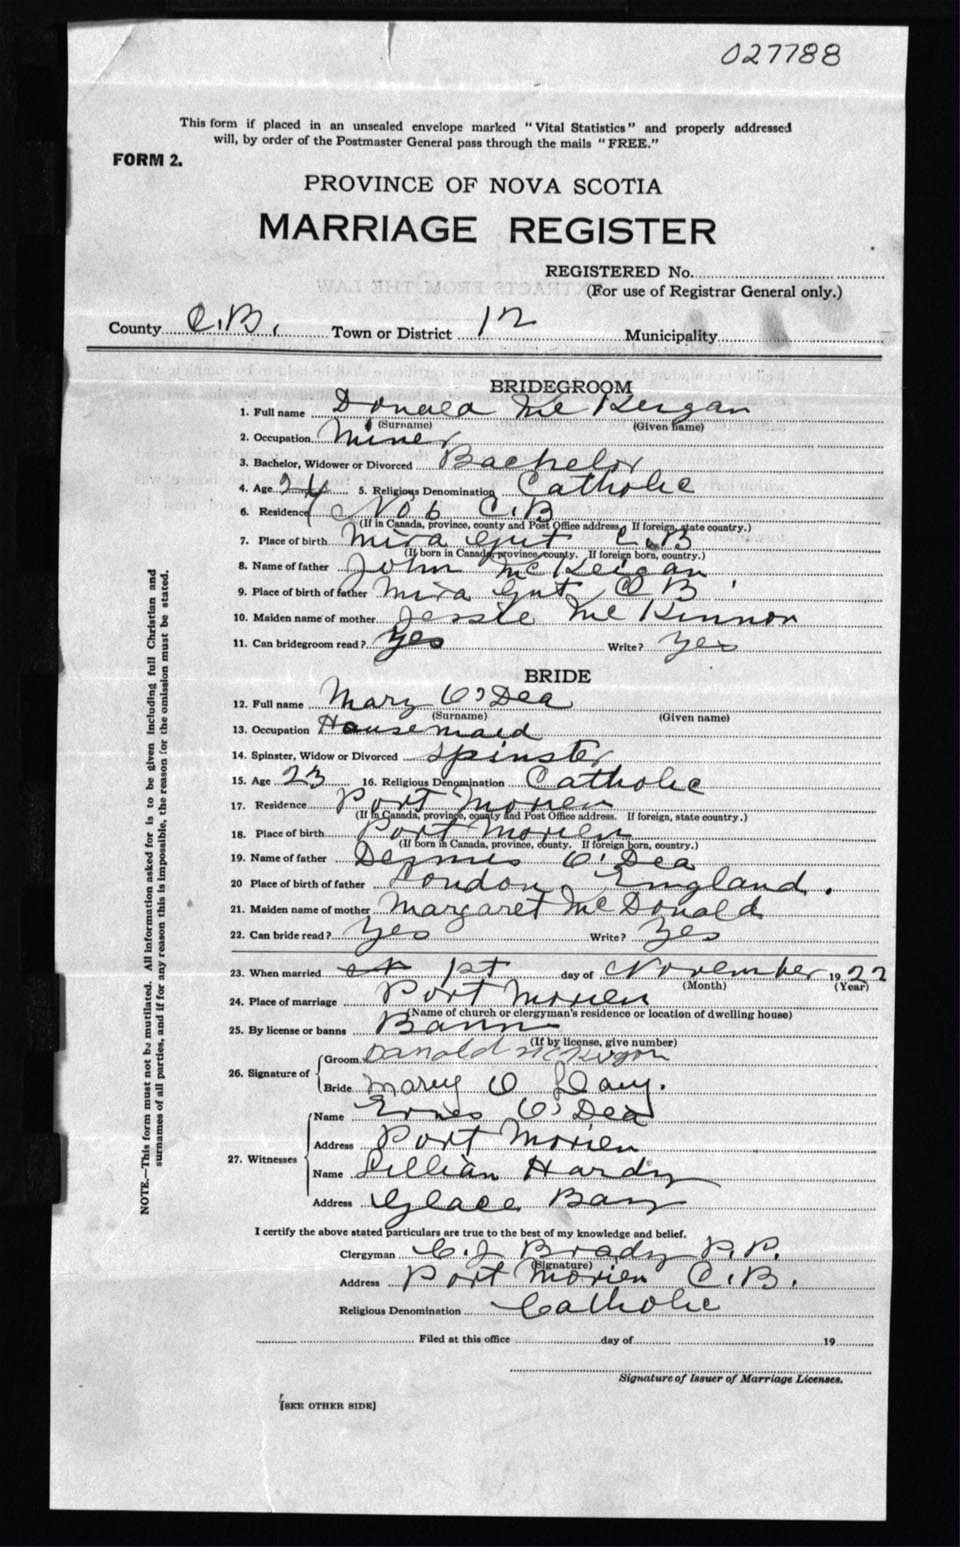 027788
This form if placed in an unsealed envelope marked "Vital Statistics" and properly addressed
will, by order of the Postmaster General pass through the mails "FREE."
FORM 2.
PROVINCE OF NOVA SCOTIA
MARRIAGE REGISTER
REGISTERED No.
(For use of Registrar General only.)
County C.B. Town or District 12 Municipality
BRIDEGROOM
1. Full name Donald Mc Keigan
(Surname) (Given name)
2. Occupation Miner
3. Bachelor, Widower or Divorced Bachelor
4. Age 24 5. Religious Denomination Catholic
6. Residence No 6 C.B
(If in Canada, province, county and Post Office address. If foreign, state country.)
7. Place of birth Mira Gut C.B
(If born in Canada, province, county. If foreign born, country.)
8. Name of father John McKeigan
9. Place of birth of father Mira Gut C B
10. Maiden name of mother Jessie Mc Kinnon
11. Can bridegroom read? Yes Write? Yes
BRIDE
12. Full name Mary O'Dea
(Surname) (Given name)
13. Occupation Housemaid
14. Spinster, Widow or Divorced Spinster
15. Age 23 16. Religious Denomination Catholic
17. Residence Port Morien
(If in Canada, province, county and Post Office address. If foreign, state country.)
18. Place of birth Port Morien
(If born in Canada, province, county. If foreign born, country.)
19. Name of father Dennis O'Dea
20 Place of birth of father London England.
21. Maiden name of mother Margaret McDonald
22. Can bride read? Yes Write? Yes
23. When married 1st day of November 1922
(Month) (Year)
24. Place of marriage Port Morien
(Name of church or clergyman's residence or location of dwelling house)
25. By license or banns Bann
(If by license, give number)
26. Signature of
Groom. Donald McKeigan
Bride Mary O Day.
27. Witnesses
Name O'Dea
Address Port Morien
Name Lillian Hardy
Address Glace Bay
I certify the above stated particulars are true to the best of my knowledge and belief.
Clergyman C. J. Brady P.P.
(Signature)
Address Port Morien C.B.
Religious Denomination Catholic
Filed at this office day of 19
Signature of Issuer of Marriage Licenses.
[SEE OTHER SIDE]
NOTE.—This form must not be mutilated. All information asked for is to be given including full Christian and
surnames of all parties, and if for any reason this is impossible, the reason for the omission must be stated.